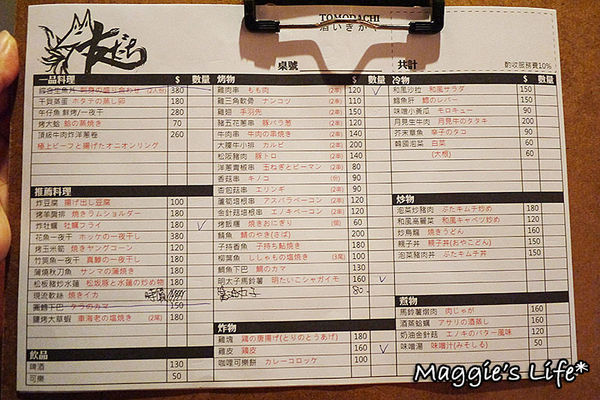 TOMODACHI
酒いきがく
桌號 共計 酌收服務費10%
一品料理 $ 數量
綜合生魚片 刺身の盛り合わせ (2人份) 380
干貝蒸蛋 ホタテの蒸し卵 180
午仔魚 鮮烤/一夜干 280
烤大蛤 蛤の蒸焼き 70
頂級牛肉炸洋蔥卷 260
極上ビーフと揚げたオニオンリング
推薦料理 $ 數量
炸豆腐 揚げ出し豆腐 100
烤羊肩排 焼きラムショルダー 180
炸牡蠣 牡蠣フライ 180
花魚一夜干 ホッケの一夜干し 380
烤玉米筍 焼きヤングコーン 120
竹筴魚一夜干 真鯵の一夜干し 180
蒲燒秋刀魚 サンマの蒲焼き 180
松板豬炒水蓮 松坂豚と水蓮の炒め物 180
現流軟絲 焼きイカ
圓鱈下巴 タラのカマ 150
鹽烤大草蝦 車海老の塩焼き (2串) 180
飲品
啤酒 130
可樂 50
烤物 $ 數量
雞肉串 もも肉 (2串) 120
雞三角軟骨 ナンコツ (2串) 110
雞翅 手羽先 (2串) 150
豬五花蔥串 豚バラ葱 (2串) 120
牛肉串 牛肉の串焼き (2串) 140
大腸牛小排 カルビ (2串) 200
松阪豬肉 豚トロ (2串) 140
洋蔥青椒串 玉ねぎとピーマン (2串) 80
香菇串 キノコ (2串) 90
杏鮑菇串 エリンギ (2串) 90
蘆筍培根串 アスパラベーコン (2串) 120
金針菇培根串 エノキベーコン (2串) 120
烤飯糰 焼きおにぎり (個) 60
鯖魚 鯖のやき(さば) 200
子持香魚 子持ち鮎焼き 180
柳葉魚 ししゃもの塩焼き (3尾) 100
鯛魚下巴 鯛のカマ 130
明太子馬鈴薯 明たいこシャガイモ 160
80.
炸物
雞塊 鶏の唐揚げ(とりのとうあげ) 160
雞皮 鶏皮 160
咖哩可樂餅 カレーコロッケ 100
冷物 $ 數量
和風沙拉 和風サラダ 150
鱈魚肝 鱈のレバー 150
味噌小黃瓜 モロキュー 90
月見生牛肉 月見牛のタタキ 200
芥末章魚 辛子のタコ 90
韓國泡菜 白菜 60
(大根) 60
炒物
泡菜炒豬肉 ぶたキムチ炒め 160
和風高麗菜 和風キャベツ炒め 120
炒烏龍 焼きうどん 160
親子丼 親子丼(おやこどん) 150
泡菜豬肉丼 ぶたキムチ丼 150
煮物
馬鈴薯燉肉 肉じゃが 160
酒蒸蛤蠣 アサリの酒蒸し 160
奶油金針菇 エノキのバター風味 120
味噌湯 味噌汁(みそしる) 50
Maggie's Life*